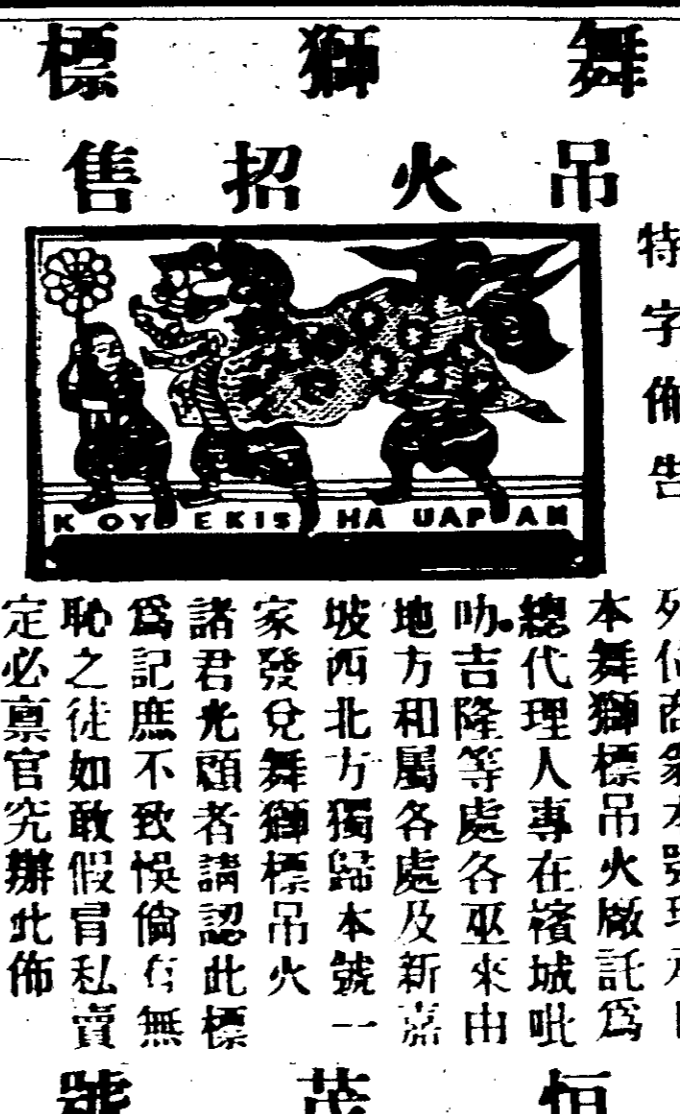 舞獅標
吊火招售
特字佈告
KOYEKISHA UAPAN
列位商家本號現承日
本舞獅標吊火廠託爲
總代理人專在檳城吡
叻吉隆等處各巫來由
地方和屬各處及新嘉
坡西北方獨歸本號一
家發兌舞獅標吊火
諸君光顧者請認此標
爲記庶不致悞倘有無
恥之徒如敢假冒私賣
定必稟官究辦此佈
恒茂號